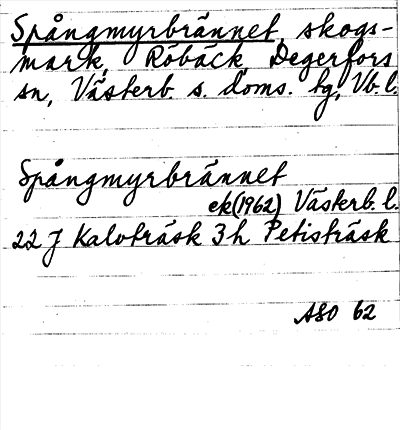 Spångmyrbrännet, skogs-
mark, Röbäck, Degerfors
sn, Västerb. s. doms. tg, Vb. l.
Spångmyrbrännet
ek(1962) Västerb. l.
22 J Kalvträsk 3 h Petisträsk
ASO 62